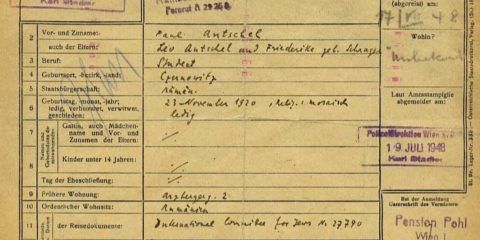 Karl Stadler
Pernruf B 29 2 68
(abgereist) am:
17/VII 48
2 Vor- und Zuname:
auch der Eltern:
Paul Antschel
Leo Antschel und Friederike geb. Schrager
Wohin?
Unbekannt
3 Beruf:
Student
4 Geburtsort, -bezirk, -land:
Czernovitz
5 Staatsbürgerschaft:
Rumän.
Laut Amtsstampiglie
abgemeldet am:
6 Geburtstag, -monat, -jahr;
ledig, verheiratet, verwitwet,
geschieden:
23. November 1920, relig.: mosaisch
ledig
7 Gattin, auch Mädchen-
name und Vor- und
Zuname der Eltern:
Kinder unter 14 Jahren:
Polizeidirektion Wien
19 JULI 1948
Karl Stadler
8 Tag der Eheschließung:
9 Frühere Wohnung:
Arzberger. 2
10 Ordentlicher Wohnsitz:
Rumänien
11 der Reisedokumente:
International Committee for Jews Nr 27790
Bei der Anmeldung
Unterschrift des Vermieters
Pension Pohl
Wien I